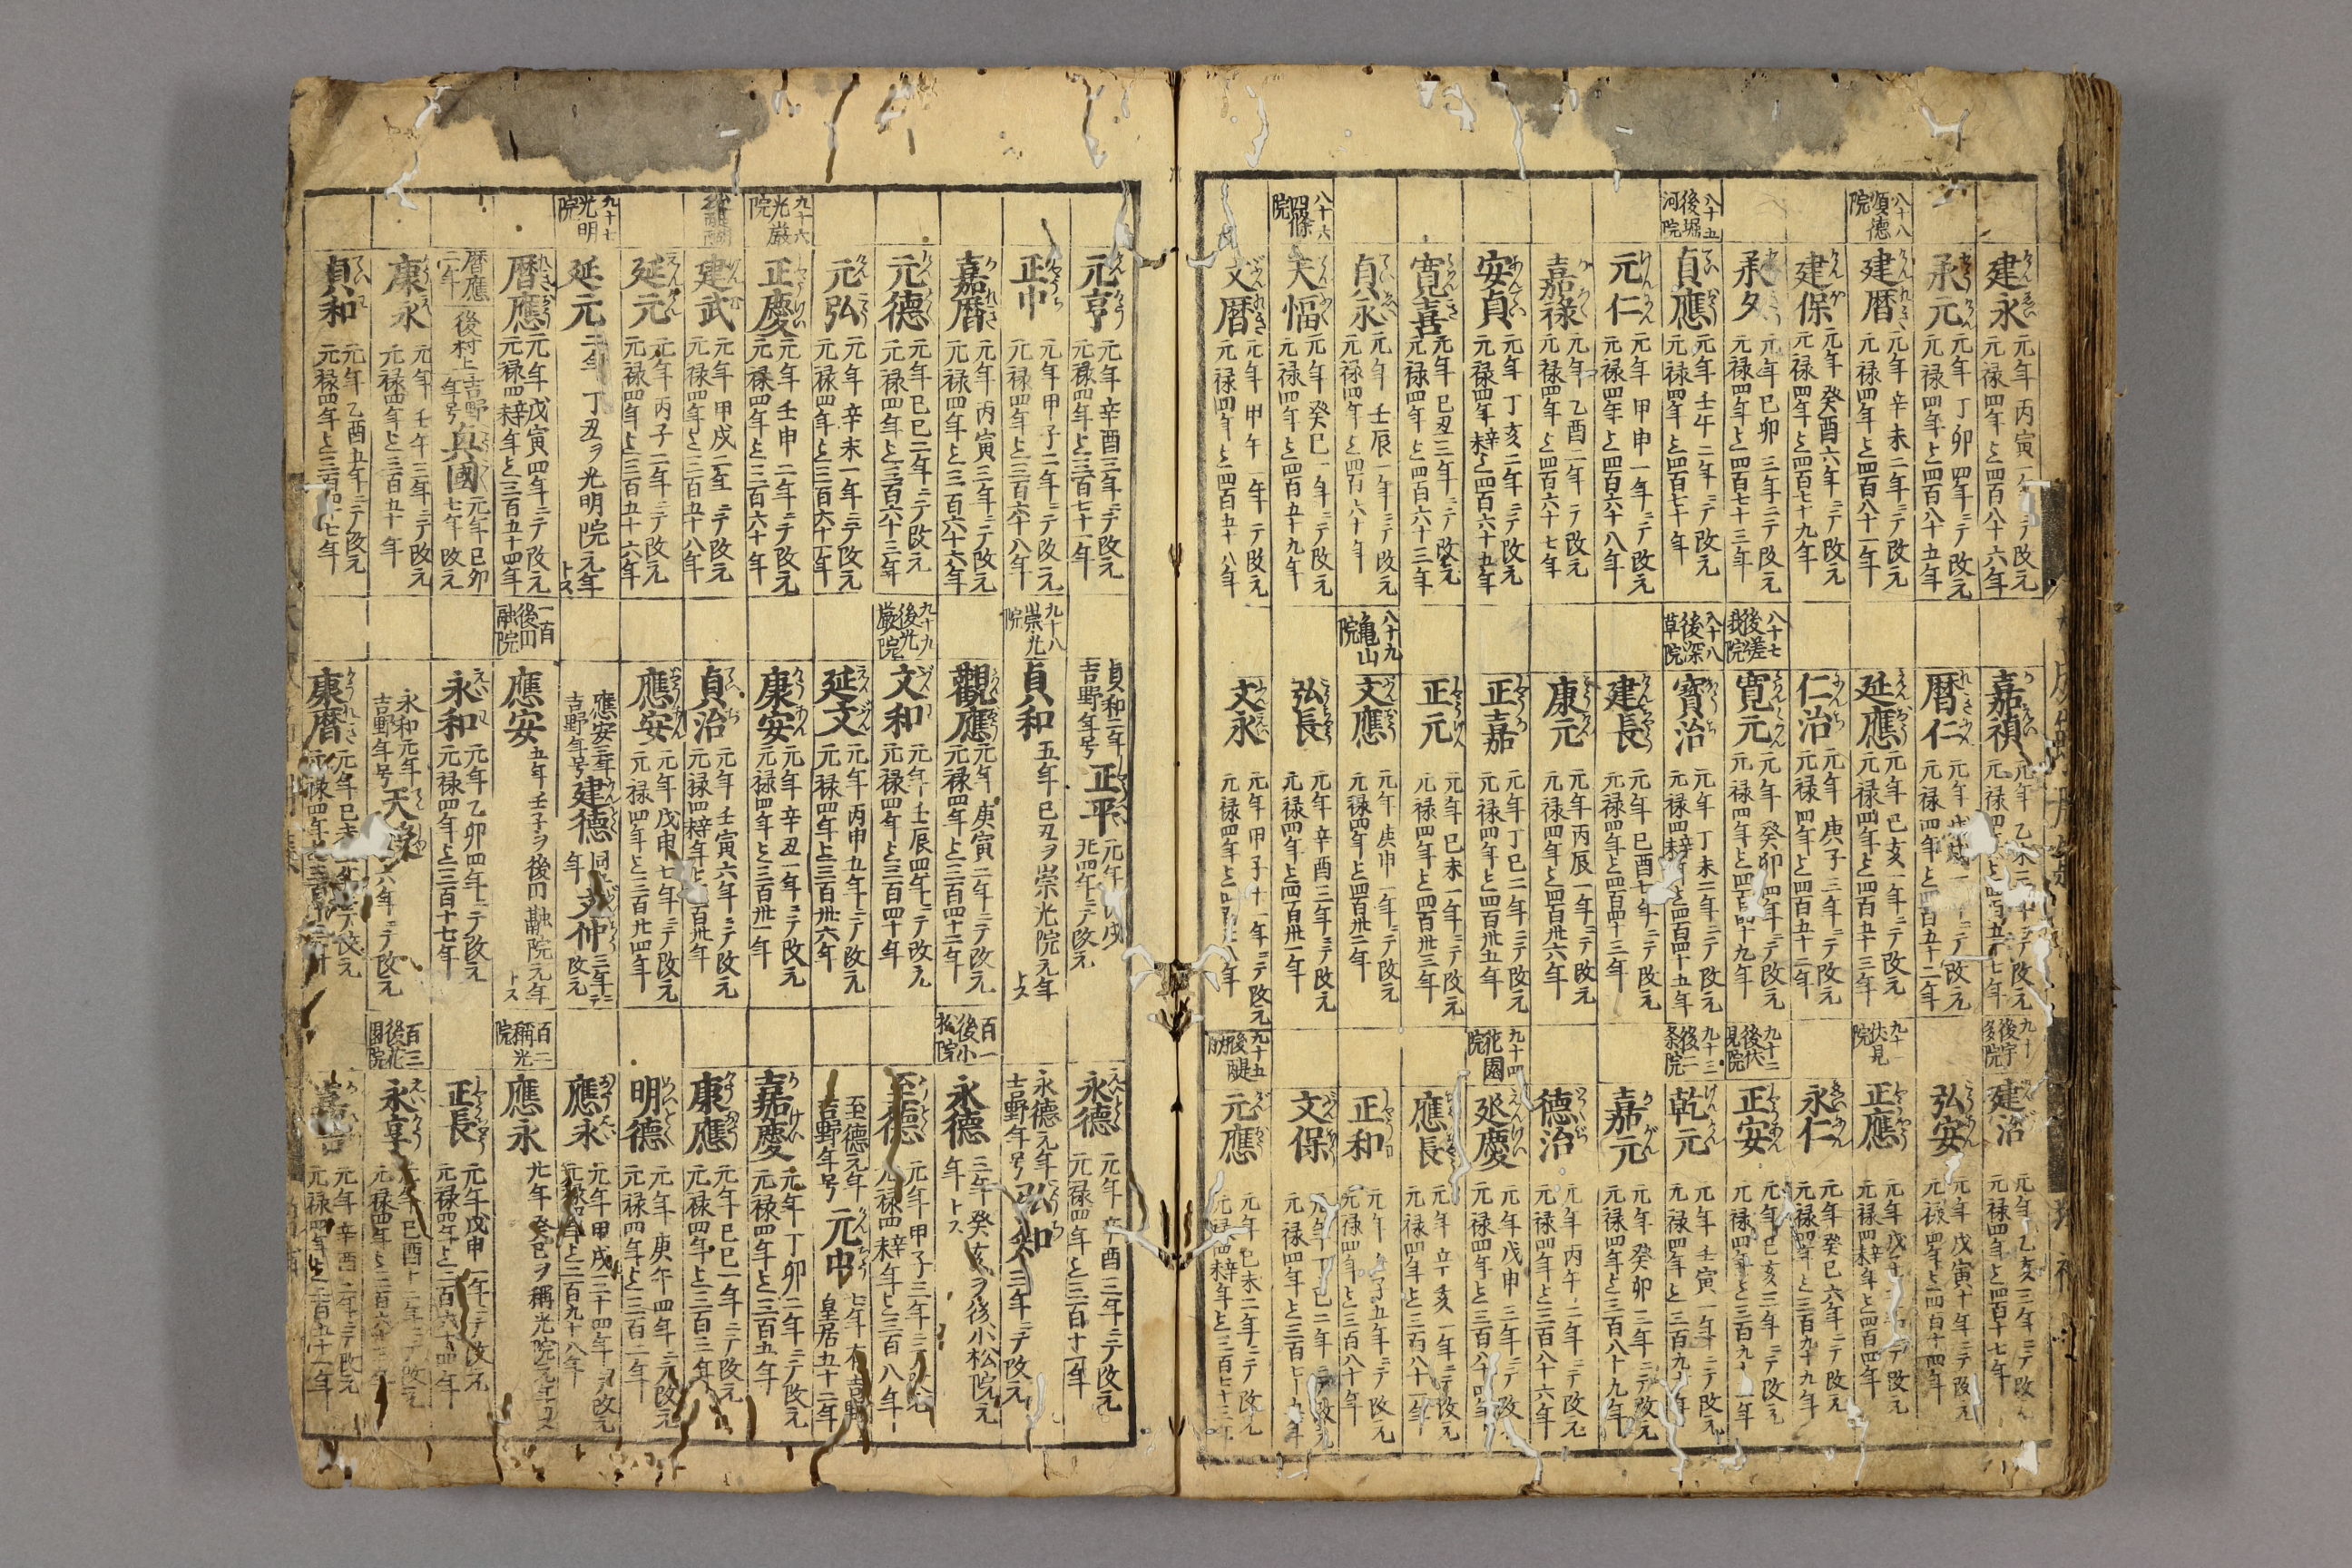 建永 元年丙寅一年ニテ改元
元禄四年ヒ四百八十六年
承元 元年丁卯四年ニテ改元
元禄四年ヒ四百八十五年
八十八
順德
院
建暦 元年辛未二年ニテ改元
元禄四年ヒ四百八十一年
建保 元年癸酉六年ニテ改元
元禄四年ヒ四百七十九年
承久 元年巳卯三年ニテ改元
元禄四年ヒ四百七十三年
八十五
後堀
河院
貞應 元年壬午二年ニテ改元
元禄四年ヒ四百七十年
元仁 元年甲申一年ニテ改元
元禄四年ヒ四百六十八年
嘉禄 元年乙酉二年ニテ改元
元禄四年ヒ四百六十七年
安貞 元年丁亥二年ニテ改元
元禄四年辛未ヒ四百六十五年
寛喜 元年巳丑三年ニテ改元
元禄四年ヒ四百六十三年
貞永 元年壬辰一年ニテ改元
元禄四年ヒ四百六十年
八十六
四條
院
天福 元年癸巳一年ニテ改元
元禄四年ヒ四百五十九年
文暦 元年甲午一年ニテ改元
元禄四年ヒ四百五十八年
嘉禎 元年乙未三年ニテ改元
元禄四年ヒ四百五十七年
暦仁 元年戊戌一年ニテ改元
元禄四年ヒ四百五十二年
延應 元年巳亥一年ニテ改元
元禄四年ヒ四百五十三年
仁治 元年庚子三年ニテ改元
元禄四年ヒ四百五十二年
八十七
後嵯
峨院
寛元 元年癸卯四年ニテ改元
元禄四年ヒ四百四十九年
八十八
後深
草院
寳治 元年丁未二年ニテ改元
元禄四辛未年ヒ四百四十五年
建長 元年巳酉七年ニテ改元
元禄四年ヒ四百四十三年
康元 元年丙辰一年ニテ改元
元禄四年ヒ四百卅六年
正嘉 元年丁巳二年ニテ改元
元禄四年ヒ四百卅五年
正元 元年巳未一年ニテ改元
元禄四年ヒ四百卅三年
八十九
亀山
院
文應 元年庚申一年ニテ改元
元禄四年ヒ四百卅二年
弘長 元年辛酉三年ニテ改元
元禄四年ヒ四百卅一年
文永 元年甲子十一年ニテ改元
元禄四年ヒ四百八年
九十
後宇
多院
建治 元年乙亥三年ニテ改元
元禄四年ヒ四百十七年
弘安 元年戊寅十年ニテ改元
元禄四年ヒ四百十四年
九十一
伏見
院
正應 元年戊子ニテ改元
元禄四辛未年ヒ四百四年
永仁 元年癸巳六年ニテ改元
元禄四年ヒ三百九十九年
九十二
後伏
見院
正安 元年巳亥三年ニテ改元
元禄四年ヒ三百九十一年
九十三
後二
条院
乾元 元年壬寅一年ニテ改元
元禄四年ヒ三百九十年
嘉元 元年癸卯三年ニテ改元
元禄四年ヒ三百八十九年
德治 元年丙午二年ニテ改元
元禄四年ヒ三百八十六年
九十四
花園
院
延慶 元年戊申三年ニテ改元
元禄四年ヒ三百八十四年
應長 元年辛亥一年ニテ改元
元禄四年ヒ三百八十一年
正和 元年壬子五年ニテ改元
元禄四年ヒ三百八十年
文保 元年丁巳二年ニテ改元
元禄四年ヒ三百七十五年
九十五
後醍
醐
元應 元年巳未二年ニテ改元
元禄四辛未年ヒ三百七十三年
元亨 元年辛酉三年ニテ改元
元禄四年ヒ三百七十一年
正中 元年甲子二年ニテ改元
元禄四年ヒ三百六十八年
嘉暦 元年丙寅三年ニテ改元
元禄四年ヒ三百六十六年
元德 元年巳巳二年ニテ改元
元禄四年ヒ三百六十三年
元弘 元年辛未一年ニテ改元
元禄四年ヒ三百六十一年
九十六
光巌
院
正慶 元年壬申二年ニテ改元
元禄四年ヒ三百六十年
後醍醐
建武 元年甲戌二年ニテ改元
元禄四年ヒ三百五十八年
延元 元年丙子二年ニテ改元
元禄四年ヒ三百五十六年
九十七
光明
院
延元 二年丁丑ヲ光明院元年トス
暦應 元年戊寅四年ニテ改元
元禄四辛未年ヒ三百五十四年
暦應二年 後村上吉野年号 真國 元年巳卯
七年改元
康永 元年壬午三年ニテ改元
元禄四年ヒ三百五十年
貞和 元年乙酉五年ニテ改元
元禄四年ヒ三百四十七年
貞和二年
吉野年号
正平 元年丙戌
廿四年ニテ改元
九十八
崇光
院
貞和 五年巳丑ヲ崇光院元年トス
觀應 元年庚寅二年ニテ改元
元禄四年ヒ三百四十二年
九十九
後光
巌院
文和 元年壬辰四年ニテ改元
元禄四年ヒ三百四十年
延文 元年丙申五年ニテ改元
元禄四年ヒ三百卅六年
康安 元年辛丑一年ニテ改元
元禄四年ヒ三百卅一年
貞治 元年壬寅六年ニテ改元
元禄四辛未年ヒ三百卅年
應安 元年戊申七年ニテ改元
元禄四年ヒ三百廿四年
應安三年
吉野年号
建德 同五年 文仲 三年ニテ改元
一百
後円
融院
應安 五年壬子ヲ後円融院元年トス
永和 元年乙卯四年ニテ改元
元禄四年ヒ三百十七年
永和元年
吉野年号
天 六年ニテ改元
康暦 元年巳未二年ニテ改元
元禄四年ヒ三百十三年
永德 元年辛酉三年ニテ改元
元禄四年ヒ三百十一年
永德元年
吉野年号
弘和 三年ニテ改元
百一
後小
松院
永德 三年癸亥ヲ後小松院元年トス
至德 元年甲子三年ニテ改元
元禄四辛未年ヒ三百八年
至德元年
吉野年号
元中 七年有吉野
皇居五十二年
嘉慶 元年丁卯二年ニテ改元
元禄四年ヒ三百五年
康應 元年巳巳一年ニテ改元
元禄四年ヒ三百三年
明德 元年庚午四年ニテ改元
元禄四年ヒ三百二年
應永 元年甲戌三十四年ニテ改元
元禄四年ヒ二百九十八年
百二
稱光
院
應永 廿年癸巳ヲ稱光院元年トス
正長 元年戊申一年ニテ改元
元禄四年ヒ二百六十四年
百三
後花
園院
永享 元年巳酉十二年ニテ改元
元禄四年ヒ二百六十三年
嘉吉 元年辛酉三年ニテ改元
元禄四年ヒ二百五十一年